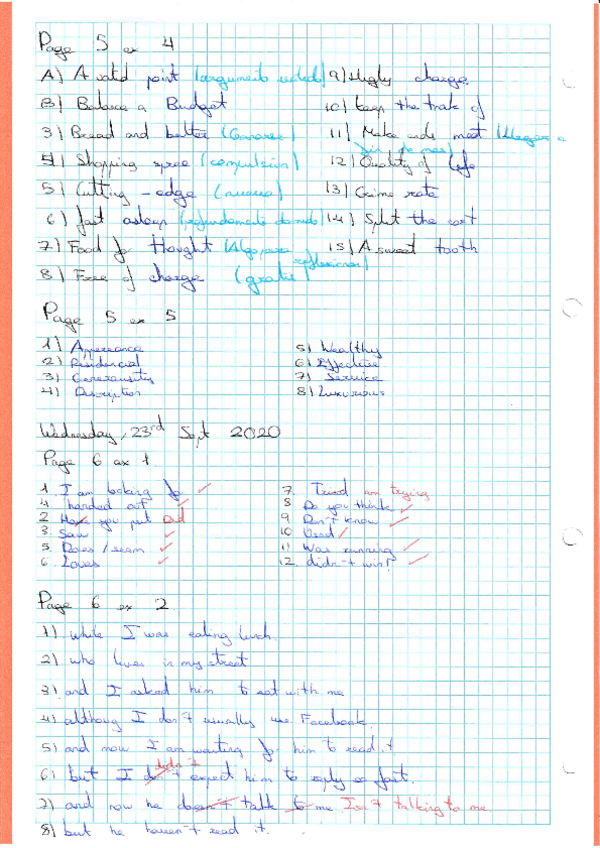 Page 5 ex 4
A) A valid point (argumento valido)
B) Balance a Budget
3) Bread and butter (
4) Shopping spree (compulsion)
5) Cutting-edge (nuevo)
6) fast asleep (profundamente dormido)
7) Food for thought (Algo para reflexionar)
8) Free of charge (gratis)
9) Higly charge
10) keep the trak of
11) Make ends meet (llegar a fin de mes)
12) Quality of life
13) Crime rate
14) Split the cost
15) A sweet tooth
Page 5 ex 5
1) Appereance
2) Residencial
3)
4) Description
5) Wealthy
6) Effective
7) Service
8) Luxurious
Wednesday, 23rd Sept 2020
Page 6 ex 1
1. I am looking for
4. handed out
2. Have you put Did
3. Saw
5. Does / seam
6. Loves
7. Tried am trying
8 Do you think
9 Don't know
10 Used
11 Was running
12. didn't win?
Page 6 ex 2
1) while I was eating lunch.
2) who lives in my street
3) and I asked him to eat with me
4) althoug I don't usually use Facebook.
5) and now I am waiting for him to read it
6) but I don't didn't expect him to reply so fast.
7) and now he doesn't talk to me Isn't talking to me
8) but he haven't read it.